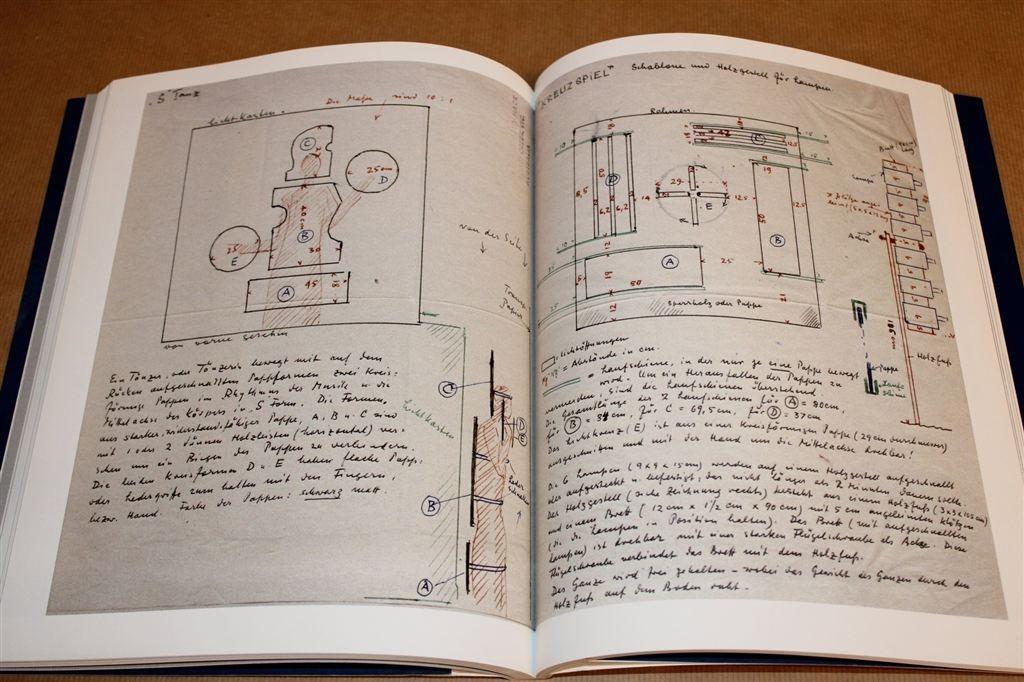 "S" Tanz
Lichtkasten.
Die Maße sind 10:1
C
25cm
D
40cm
B
30
25
E
45
A
18
von vorne gesehen
Ein Tänzer oder Tänzerin bewegt mit auf dem
Rücken aufgeschnallten Pappformen zwei Kreis=
förmige Pappen im Rhythmus der Musik u. die
Mittelachse des Körpers in S Form. Die Formen,
aus starker, widerstandsfähiger Pappe, A, B u. C sind
mit 1 oder 2 dünnen Holzleisten (horizontal) ver=
sehen um ein Biegen der Pappen zu verhindern.
Die beiden Kreisformen D u. E haben flache Papp=
oder Ledergriffe zum halten mit den Fingern,
bezw. Hand. Farbe der Pappen: schwarz matt.
von der Seite
Lichtkasten
C
D
E
B
A
Leder
Schnallen
"KREUZSPIEL" Schablone und Holzgestell für Lampen.
Rahmen.
C
12,5
D
8,5
6,2
6,2
14
29
E
12,5
19
B
12,5
A
19
80
25
12
Sperrholz oder Pappe
Brett
Lampe
Achse
Holzfuß
= Lichtöffnungen
= Abstände in cm.
= Laufschiene, in der nur je eine Pappe bewegt
wird. Um ein Herausfallen der Pappen zu
vermeiden, sind die Laufschienen überstehend.
Die Gesamtlänge der 2 Laufschienen für A = 80cm,
für B = 84cm, für C = 69,5cm, für D = 87cm
Das Lichtkreuz (E) ist aus einer kreisförmigen Pappe (29cm durchmesser)
ausgeschnitten und mit der Hand um die Mittelachse drehbar!
Die 6 Lampen (9 x 9 x 15cm) werden auf einem Holzgestell aufgeschnallt
oder aufgesteckt u. befestigt, das nicht länger als 2 Minuten dauern sollte.
Das Holzgestell (siehe Zeichnung rechts) besteht aus einem Holzfuß (3x3x105cm)
und einem Brett [12cm x 1/2cm x 90cm) mit 5cm angeleimten Klötzen
(die die Lampen in Position halten). Das Brett (mit aufgeschnallten
Lampen) ist drehbar mit einer starken Flügelschraube als Achse. Diese
Flügelschraube verbindet das Brett mit dem Holzfuß.
Das Ganze wird frei gehalten – wobei das Gewicht des Ganzen durch den
Holzfuß auf dem Boden ruht.